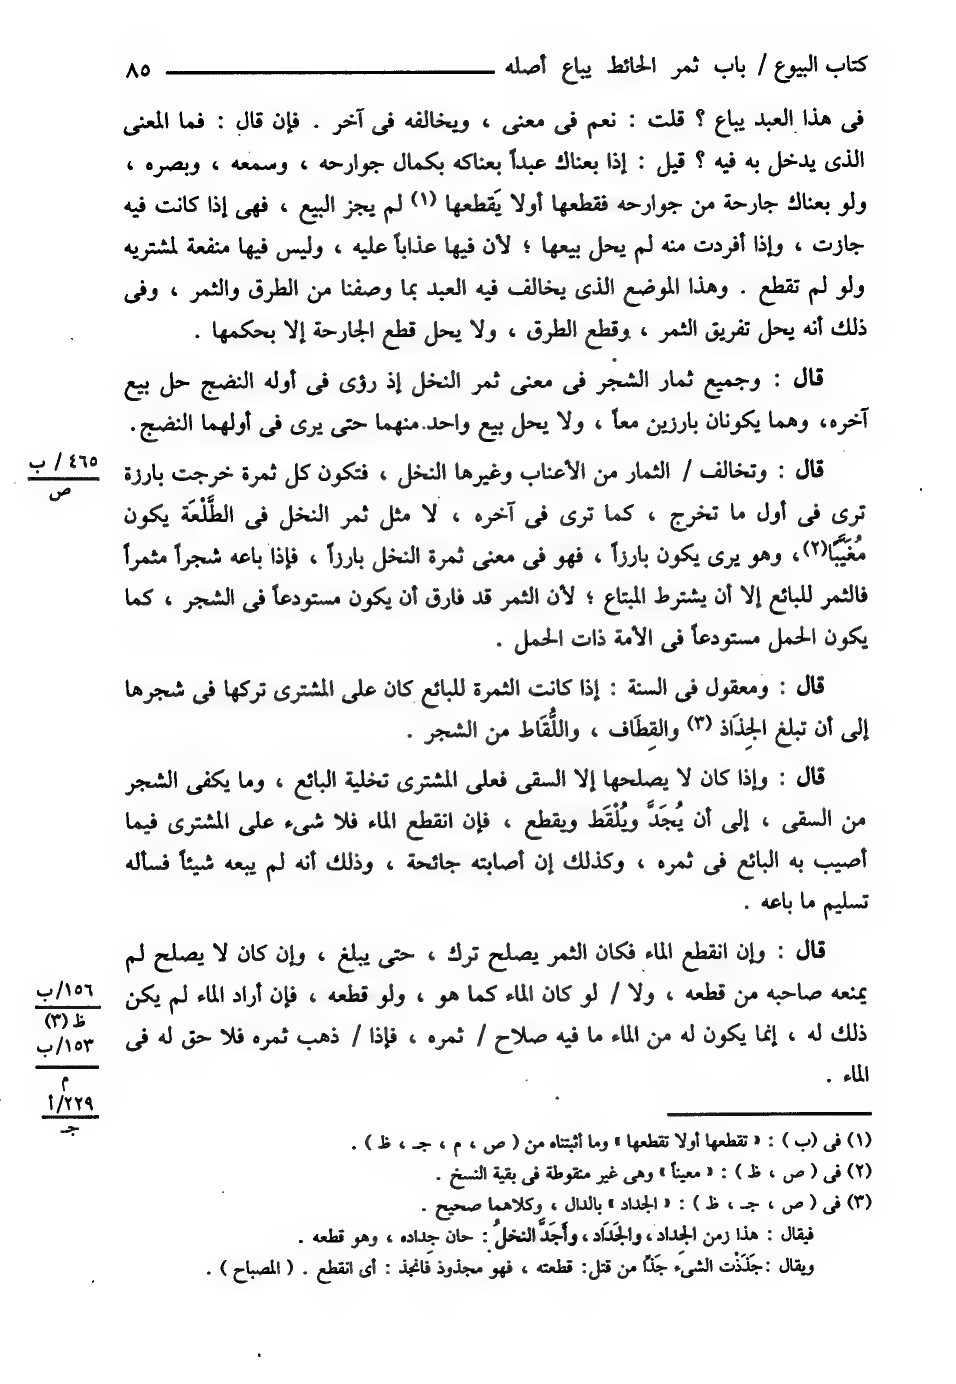 كتاب البيوع / باب ثمر الحائط يباع أصله ٨٥
فى هذا العبد يباع ؟ قلت : نعم فى معنى ، ويخالفه فى آخر . فإن قال : فما المعنى
الذى يدخل به فيه ؟ قيل : إذا بعناك عبداً بعناكه بكمال جوارحه ، وسمعه ، وبصره ،
ولو بعناك جارحة من جوارحه فقطعها أولا يَقطعها (١) لم يجز البيع ، فهى إذا كانت فيه
جازت ، وإذا أفردت منه لم يحل بيعها ؛ لأن فيها عذاباً عليه ، وليس فيها منفعة لمشتريه
ولو لم تقطع . وهذا الموضع الذى يخالف فيه العبد بما وصفنا من الطرق والثمر ، وفى
ذلك أنه يحل تفريق الثمر ، وقطع الطرق ، ولا يحل قطع الجارحة إلا بحكمها .
قال : وجميع ثمار الشجر فى معنى ثمر النخل إذ رؤى فى أوله النضج حل بيع
آخره، وهما يكونان بارزين معاً ، ولا يحل بيع واحد منهما حتى يرى فى أولهما النضج.
قال : وتخالف / الثمار من الأعناب وغيرها النخل ، فتكون كل ثمرة خرجت بارزة
ترى فى أول ما تخرج ، كما ترى فى آخره ، لا مثل ثمر النخل فى الطَّلْعَة يكون
مُغَيَّبًا(٢)، وهو يرى يكون بارزاً ، فهو فى معنى ثمرة النخل بارزاً ، فإذا باعه شجراً مثمراً
فالثمر للبائع إلا أن يشترط المبتاع ؛ لأن الثمر قد فارق أن يكون مستودعاً فى الشجر ، كما
يكون الحمل مستودعاً فى الأمة ذات الحمل .
قال : ومعقول فى السنة : إذا كانت الثمرة للبائع كان على المشترى تركها فى شجرها
إلى أن تبلغ الجِذَاذ (٣) والقِطَاف ، واللُّقَاط من الشجر .
قال : وإذا كان لا يصلحها إلا السقى فعلى المشترى تخلية البائع ، وما يكفى الشجر
من السقى ، إلى أن يُجَذَّ ويُلْقَط ويقطع ، فإن انقطع الماء فلا شىء على المشترى فيما
أصيب به البائع فى ثمره ، وكذلك إن أصابته جائحة ، وذلك أنه لم يبعه شيئاً فسأله
تسليم ما باعه .
قال : وإن انقطع الماء فكان الثمر يصلح ترك ، حتى يبلغ ، وإن كان لا يصلح لم
يمنعه صاحبه من قطعه ، ولا / لو كان الماء كما هو ، ولو قطعه ، فإن أراد الماء لم يكن
ذلك له ، إنما يكون له من الماء ما فيه صلاح / ثمره ، فإذا / ذهب ثمره فلا حق له فى
الماء .
٤٦٥ / ب
ص
١٥٦/ب
ظ (٣)
١٥٣/ب
م
٢٢٩/أ
جـ
(١) فى (ب ) : « تقطعها أولا تقطعها » وما أثبتناه من ( ص ، م ، جـ ، ظ ) .
(٢) فى ( ص ، ظ ) : « معيناً » وهى غير منقوطة فى بقية النسخ .
(٣) فى ( ص ، جـ ، ظ ) : « الجداد » بالدال ، وكلاهما صحيح .
فيقال : هذا زمن الجِداد، والجَدَاد، وأَجَدَّ النخلُ : حان جِداده ، وهو قطعه .
ويقال :جَذَذْت الشىء جَذّاً من قتل: قطعته ، فهو مجذوذ فانجذ : أى انقطع . ( المصباح ) .